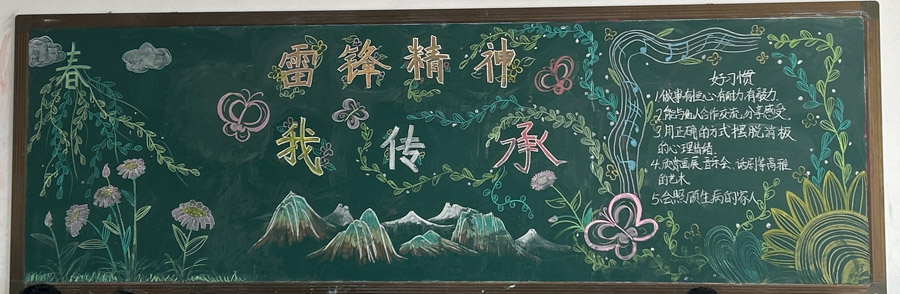 春
雷锋精神
我传承
好习惯
1.做事有恒心有耐力有毅力
2.能与他人合作交流,分享感受
3.用正确的方式摆脱消极
的心理情绪.
4.欣赏画展,音乐会,话剧等高雅
的艺术.
5.会照顾生病的家人